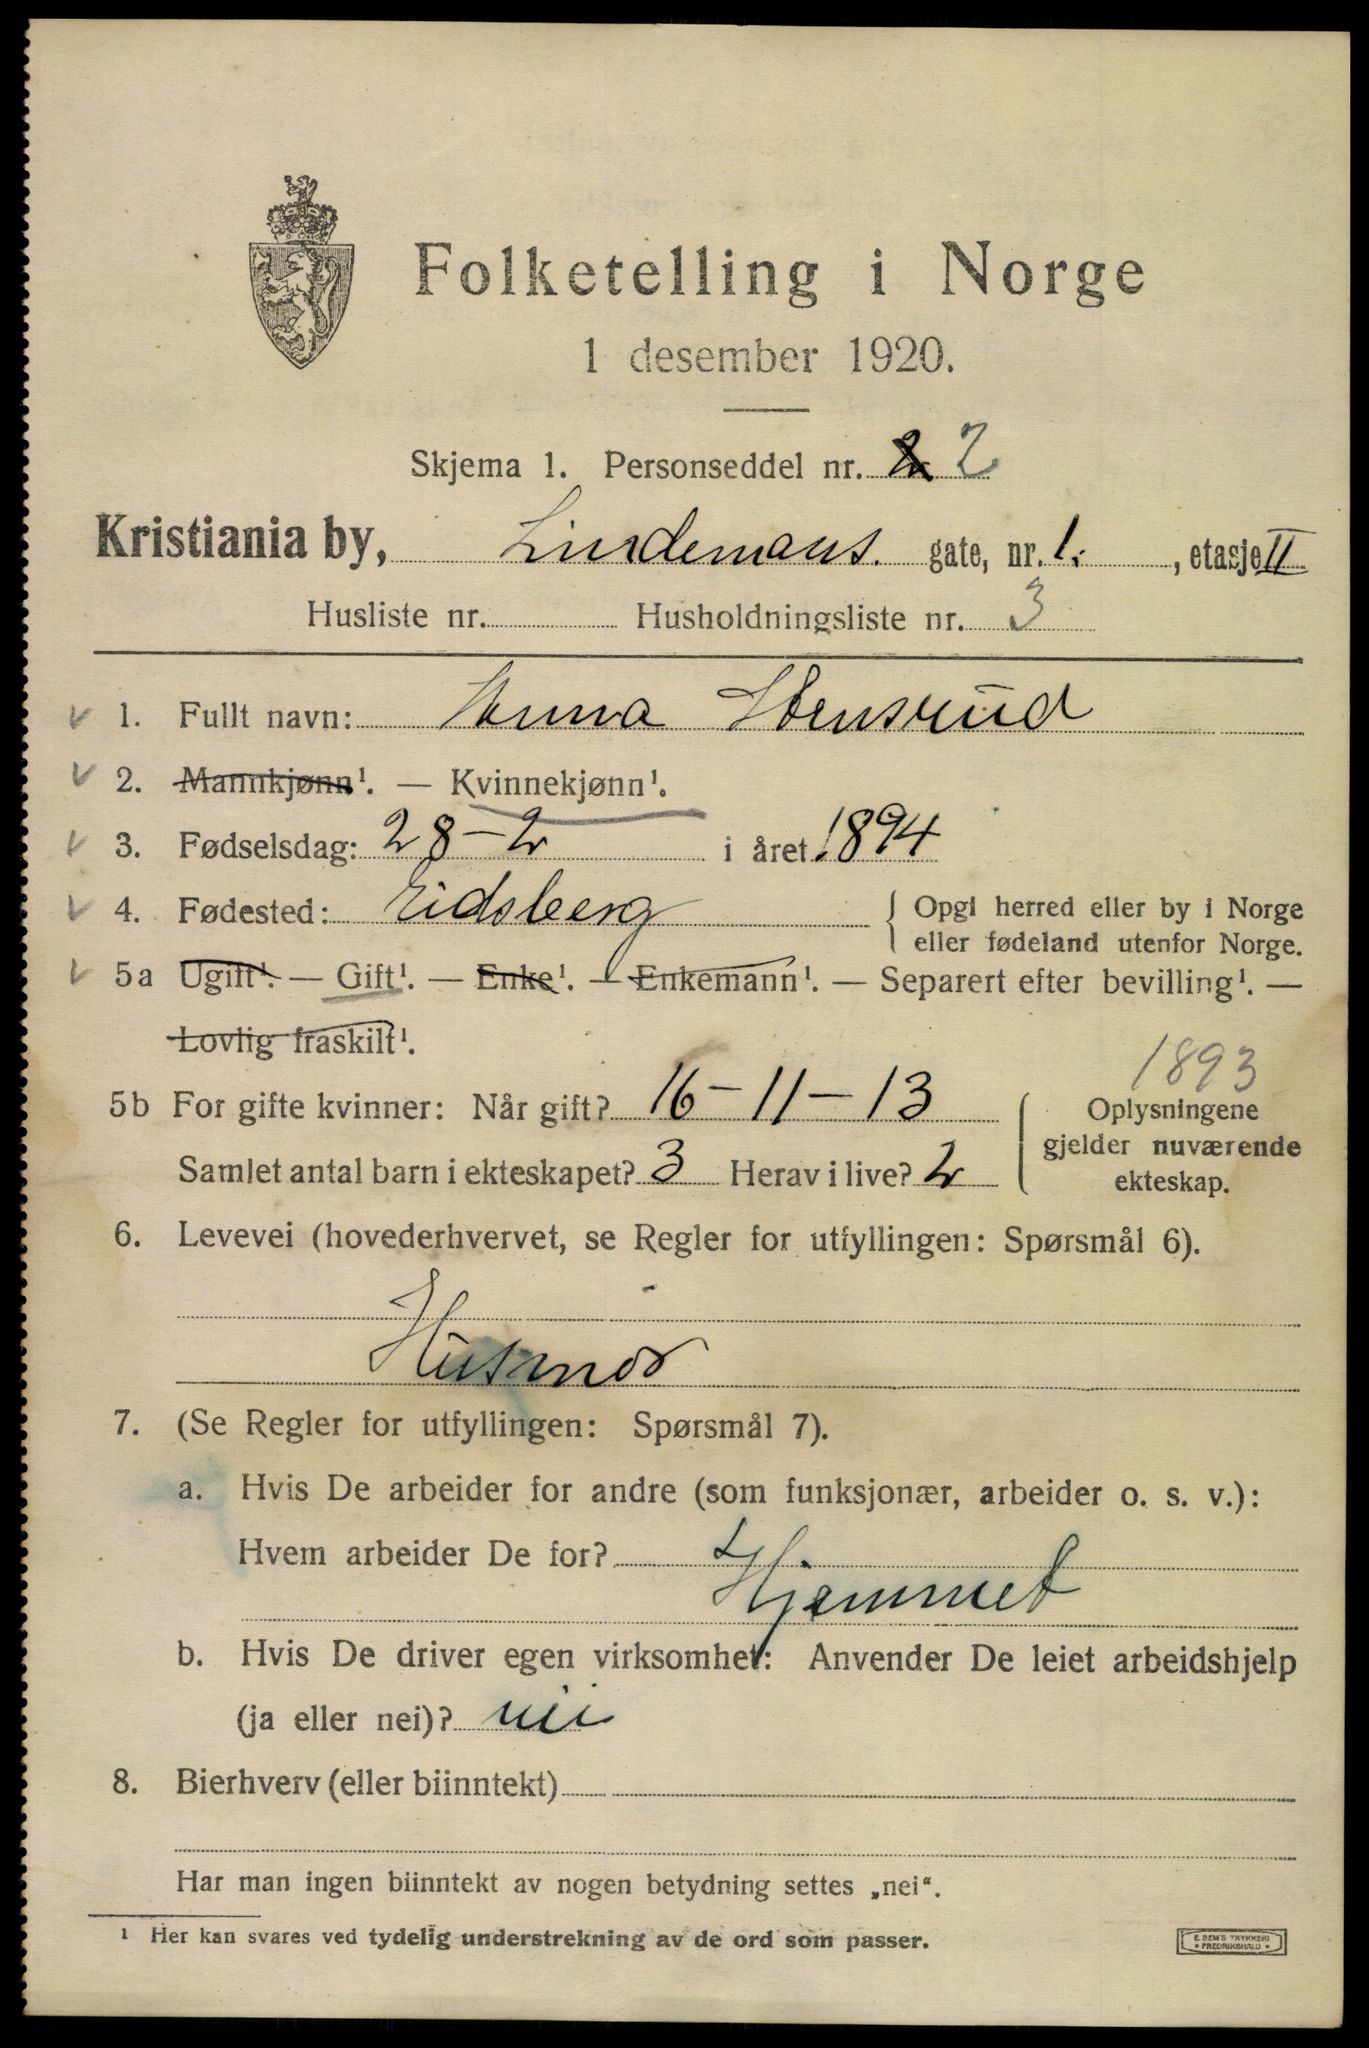 Folketelling i Norge
1 desember 1920.
Skjema 1. Personseddel nr. 2 2
Kristiania by, Lindemans. gate, nr. 1. , etasje II
Husliste nr. Husholdningsliste nr. 3
1. Fullt navn: Anna Hensrud
2. Mannkjønn¹. — Kvinnekjønn¹.
3. Fødselsdag: 28-2 i året 1894
4. Fødested: Eidsberg { Opgi herred eller by i Norge
eller fødeland utenfor Norge.
5a Ugift¹. — Gift¹. — Enke¹. — Enkemann¹. — Separert efter bevilling¹. —
Lovlig fraskilt¹.
1893
5b For gifte kvinner: Når gift? 16-11-13 { Oplysningene
gjelder nuværende
Samlet antal barn i ekteskapet? 3 Herav i live? 2 ekteskap.
6. Levevei (hovederhvervet, se Regler for utfyllingen: Spørsmål 6).
Husmor
7. (Se Regler for utfyllingen: Spørsmål 7).
a. Hvis De arbeider for andre (som funksjonær, arbeider o. s. v.):
Hvem arbeider De for? Hjemmet
b. Hvis De driver egen virksomhet: Anvender De leiet arbeidshjelp
(ja eller nei)? nei
8. Bierhverv (eller biinntekt)
Har man ingen biinntekt av nogen betydning settes „nei“.
¹ Her kan svares ved tydelig understrekning av de ord som passer.
E. SEM'S TRYKKERI
• FREDRIKSHALD •